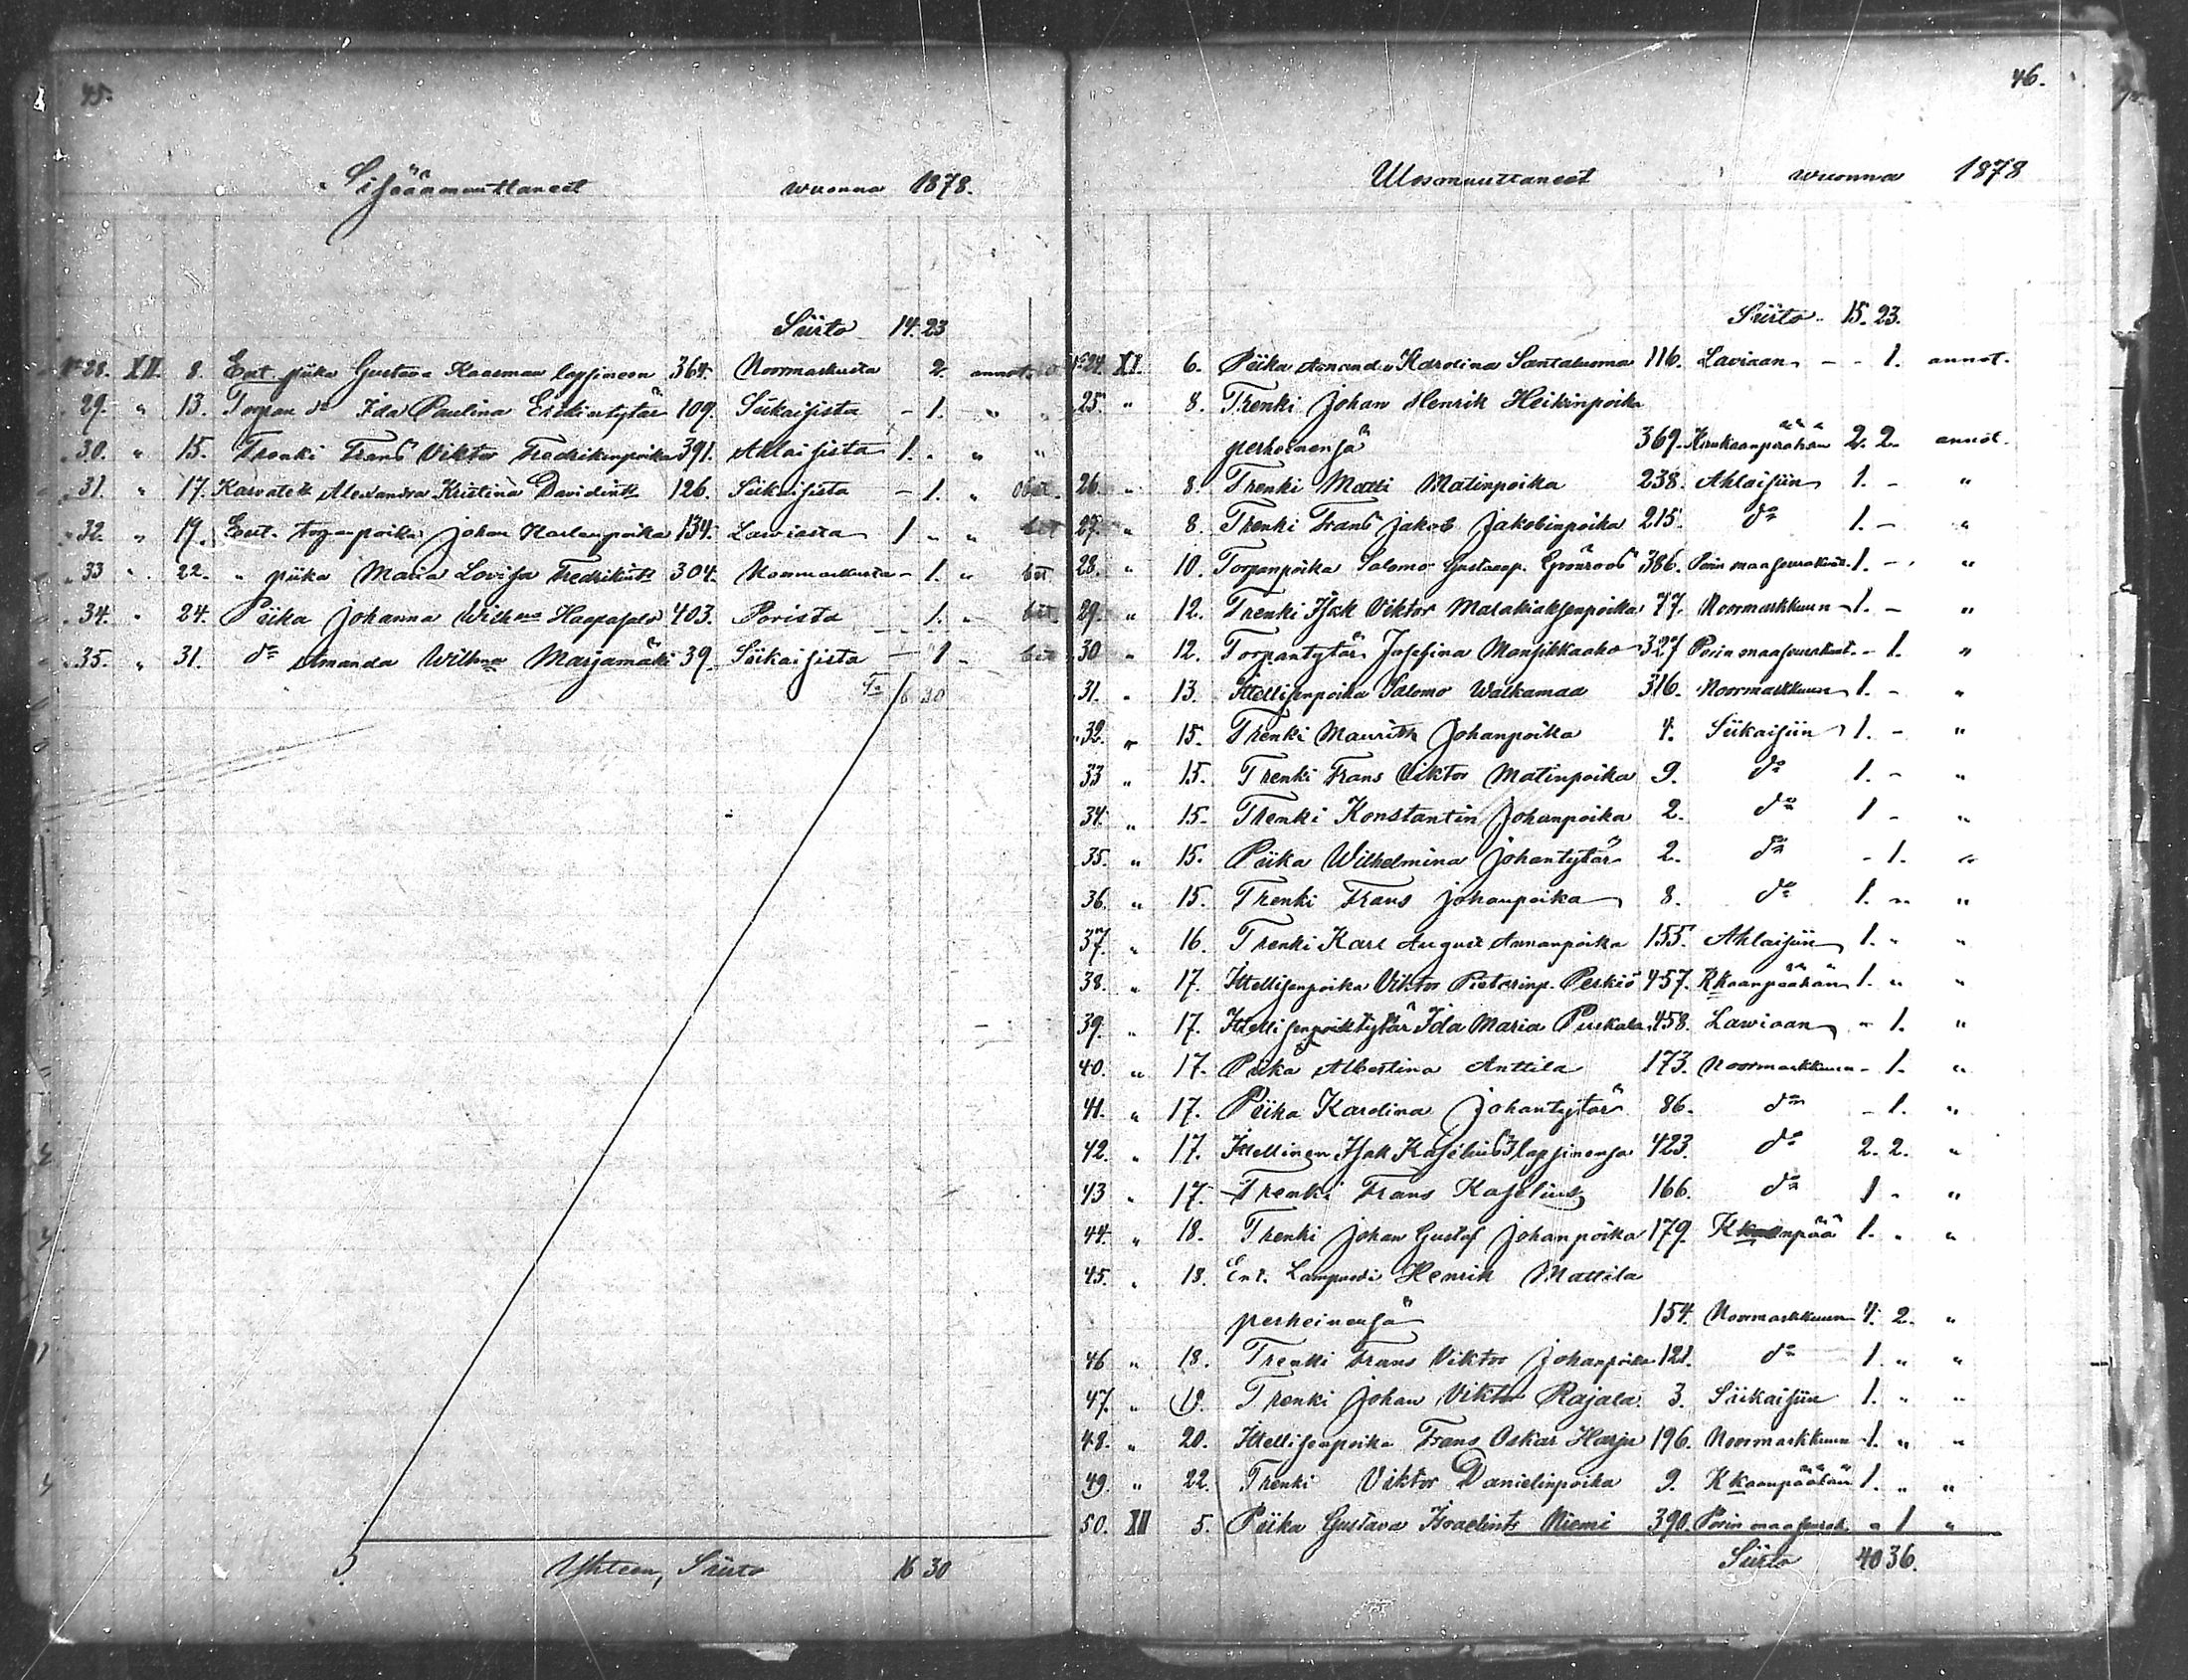 45.
Sisäänmuuttaneet wuonna 1878.
Siirto 14. 23
No 28. XII. 8. Ent. piika Gustava Kaasman lapsineen 364. Noormarkusta 2. annot.
29. " 13. Torpan do Ida Paulina Erikintytär 109. Siikaisista - 1. " "
30. " 15. Trenki Frans Viktor Fredrikinpoika 391. Ahlaisista 1. " " "
31. " 17. Kasvatett. Alexandra Kristina Davidint. 126. Siikaisista - 1. "
32. " 19. Ent. torpanpoika Johan Karlenpoika 134. Laviasta 1 " "
33 " 22. " piika Maria Lovisa Fredrikint. 304. Noormarkusta - 1. "
34. " 24. Piika Johanna Wilhna Haapasalo 403. Porista - 1. "
35. " 31. do Amanda Wilhna Marjamäki 39. Siikaisista - 1 "
Sa 16 30
Yhteen, Siirto 16 30
46.
Ulosmuuttaneet wuonna 1878
Siirto 15. 23.
No 24. XI. 6. Piika Amanda Karolina Santaluoma 116. Laviaan - - 1. annot.
25. " 8. Trenki Johan Henrik Heikinpoika
perheinensä 369. Kankaanpäähän 2. 2. annot.
26. " 8. Trenki Matti Matinpoika 238. Ahlaisiin 1. - "
27. " 8. Trenki Frans Jakob Jakobinpoika 215. do 1. - "
28. " 10. Torpanpoika Salomo Gustaap. Grönroos 386. Porin maaseurakunt. 1. - "
29. " 12. Trenki Isak Viktor Malakiaksenpoika 77. Noormarkkuun - 1. - "
30 " 12. Torpantytär Josefina Mansikkaaho 327 Porin maaseurakunt. - 1. "
31. " 13. Ittellisenpoika Salomo Walkamaa 316. Noormarkkuun 1. - "
32. " 15. Trenki Mauritz Johanpoika 4. Siikaisiin 1. - "
33 " 15. Trenki Frans Viktor Matinpoika 9. do 1. - "
34. " 15. Trenki Konstantin Johanpoika 2. do 1 - "
35. " 15. Piika Wilhelmina Johantytär 2. do - 1. "
36. " 15. Trenki Frans Johanpoika 8. do 1. " "
37. " 16. Trenki Karl August Annanpoika 155. Ahlaisiin 1. " "
38. " 17. Ittellisenpoika Viktor Pieterinp. Perkiö 457. Kkaanpäähän 1. " "
39. " 17. Ittellisen tytär Ida Maria Puskala 458. Laviaan " 1. "
40. " 17. Piika Albertina Anttila 173. Noormarkkuun - 1. "
41. " 17. Piika Karolina Johantytär 86. do - 1. "
42. " 17. Ittellinen Isak Kaselius 3 lapsinensa 423. do 2. 2. "
43 " 17. Trenki Frans Kaselius 166. do 1 " "
44. " 18. Trenki Johan Gustaf Johanpoika 179. Kkaanpää 1. " "
45. " 18. Ent. Lampuodi Henrik Mattila
perheinensä 154. Noormarkkuun 4. 2. "
46 " 18. Trenki Frans Viktor Johanpoika 121. do 1. " "
47. " 19. Trenki Johan Viktor Rajala 3. Siikaisiin 1. " "
48. " 20. Ittellisenpoika Frans Oskar Harju 196. Noormarkkuun 1. " "
49. " 22. Trenki Viktor Danielinpoika 9. Kkaanpäähän 1. " "
50. XII 5. Piika Gustava Israelint. Niemi 390. Porin maaseurak. " 1 "
Siirto 40 36.